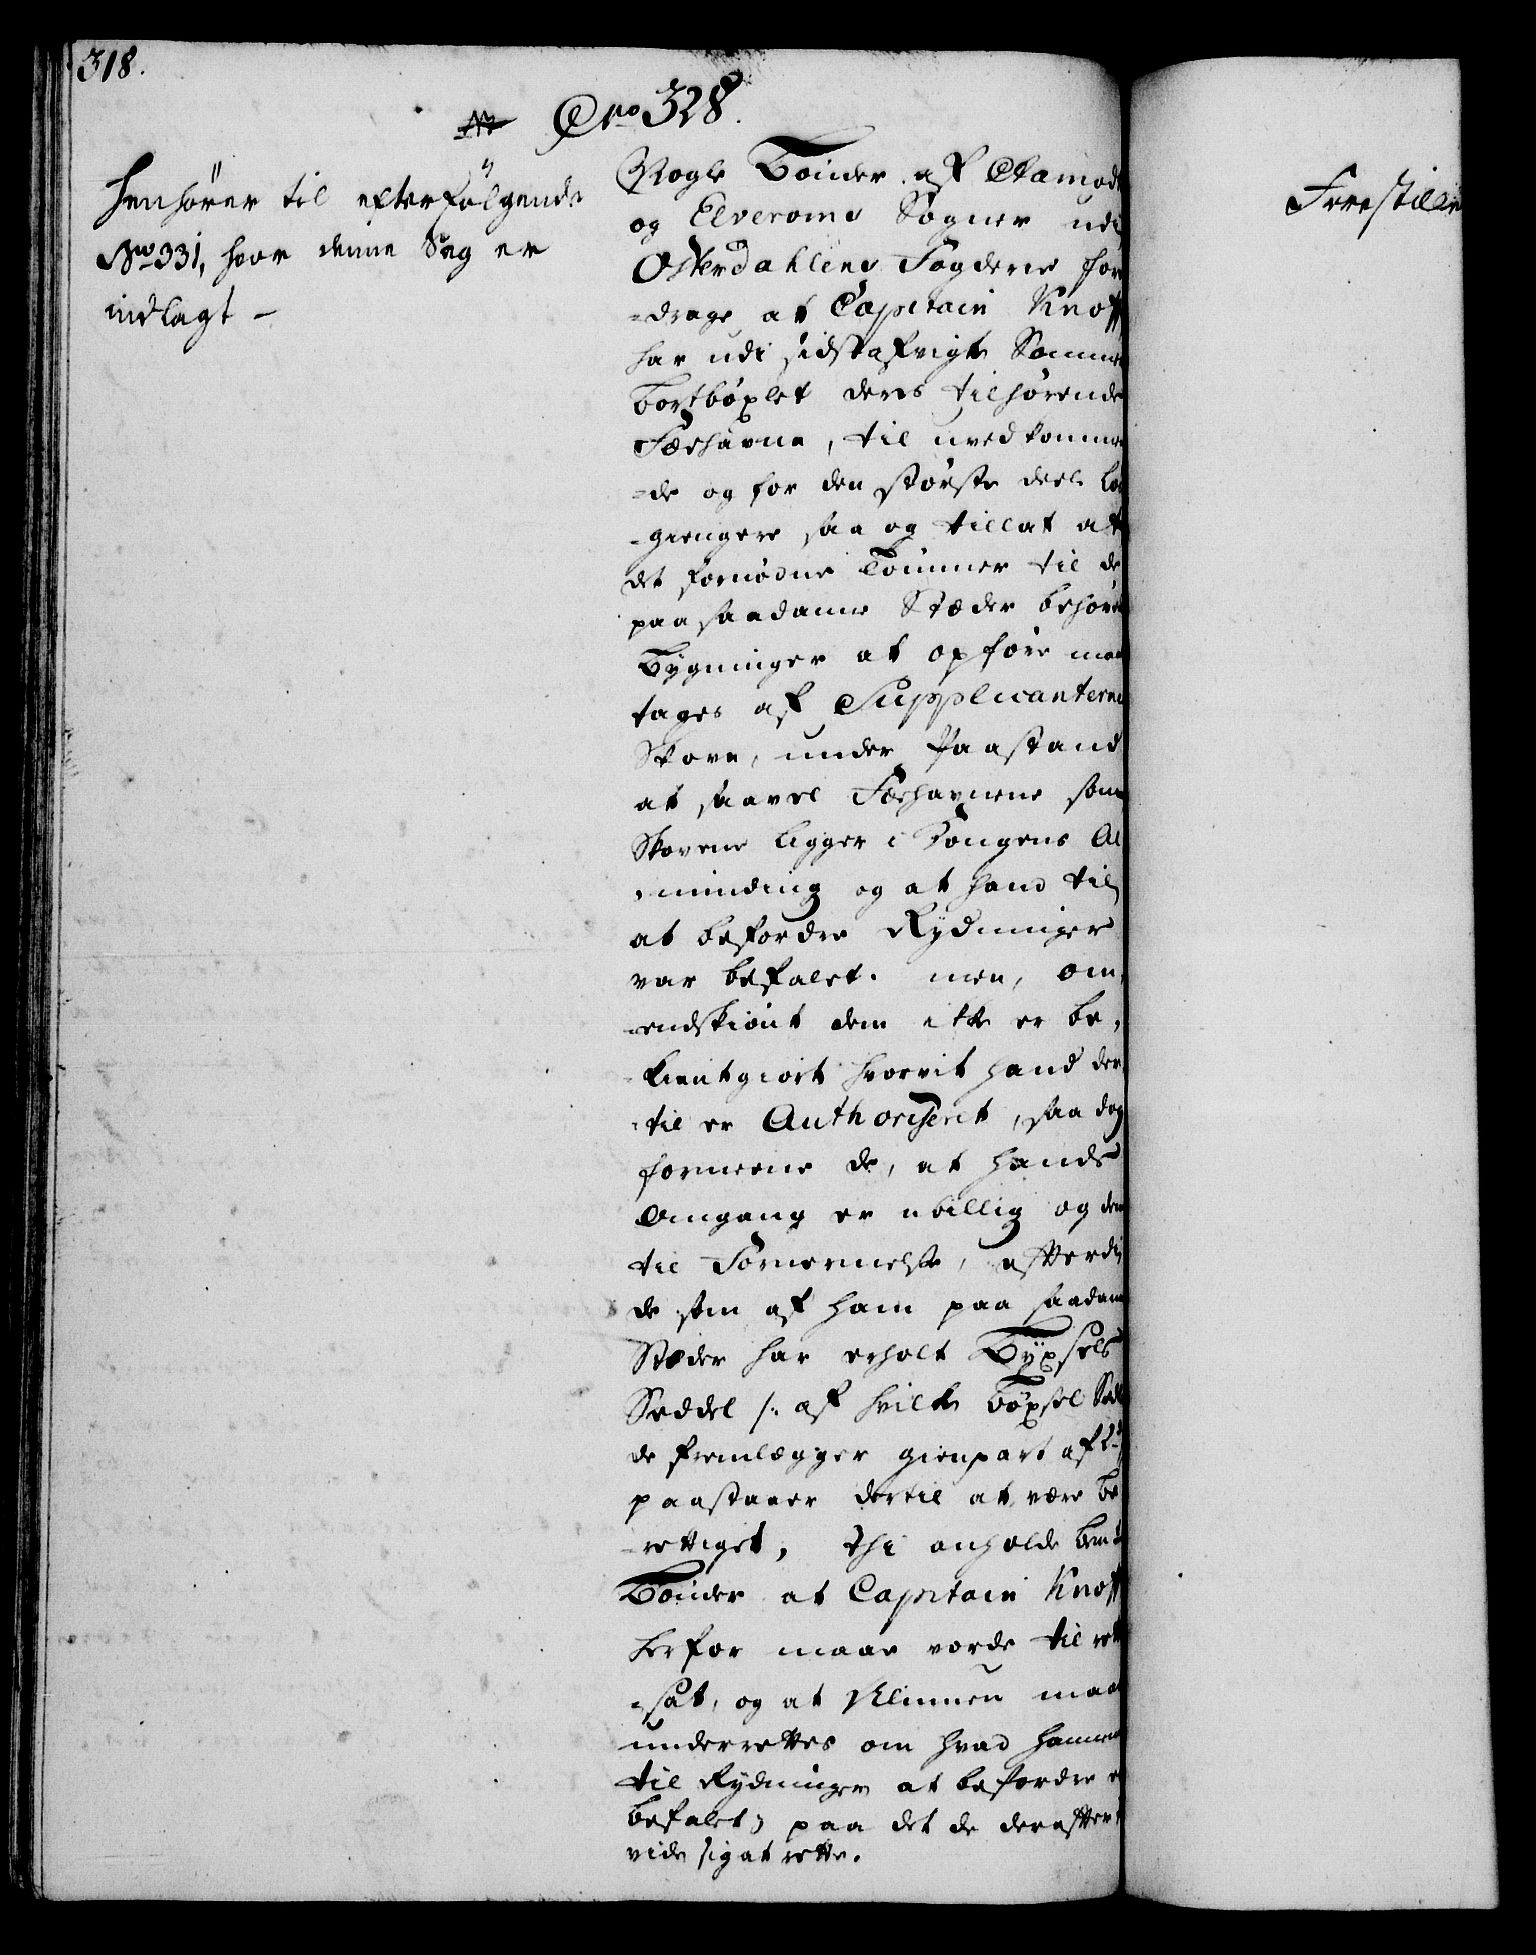 318.
No 328.
Henhører til efterfølgende
No 331, hvor denne Sag er
indlagt –
Nogle Bønder af Aamods
og Elveroms Sogner udi
Osterdahlens Fogderie for
-drage at Capitain Knoff
har udi sidst afvigte Sommer
bortbøxlet deres tilhørende
Fæehavne, til uvedkommen
-de og for den største deel Løs
-giengere saa og tillat at
det fornødne Tømmer til de
paa saadanne Stæder behøve
Bygninger at opføre maa
tages af Supplicanternes
Skove, under Paastand
at saavel Fæehavnene som
Skovene ligger i Kongens Al
-minding og at hand til
at befordre Rydninger
var befalet. men, om
-endskiønt dem ikke er be,
-kientgiort hvorvit hand der,
-til er Authoriseret, saa dog
formeene de, at hands
Omgang er ubillig og dem
til Fornærmelse, efterdi
de som af ham paa saadanne
Stæder har erholt Byxsels
Seddel /: af hvilke bøxsel Sedl
de fremlægger gienpart af
paastaaer dertil at være be
-rettiget, thi anholde bemte
Bønder at Capitain Knoff
herfor maae vorde til rette
-sat, og at Klinnen maa
underrettes om hvad hannem
til Rydninger at befordre er
befalet, paa det de derefter
vide sig at rette.
Forestillin